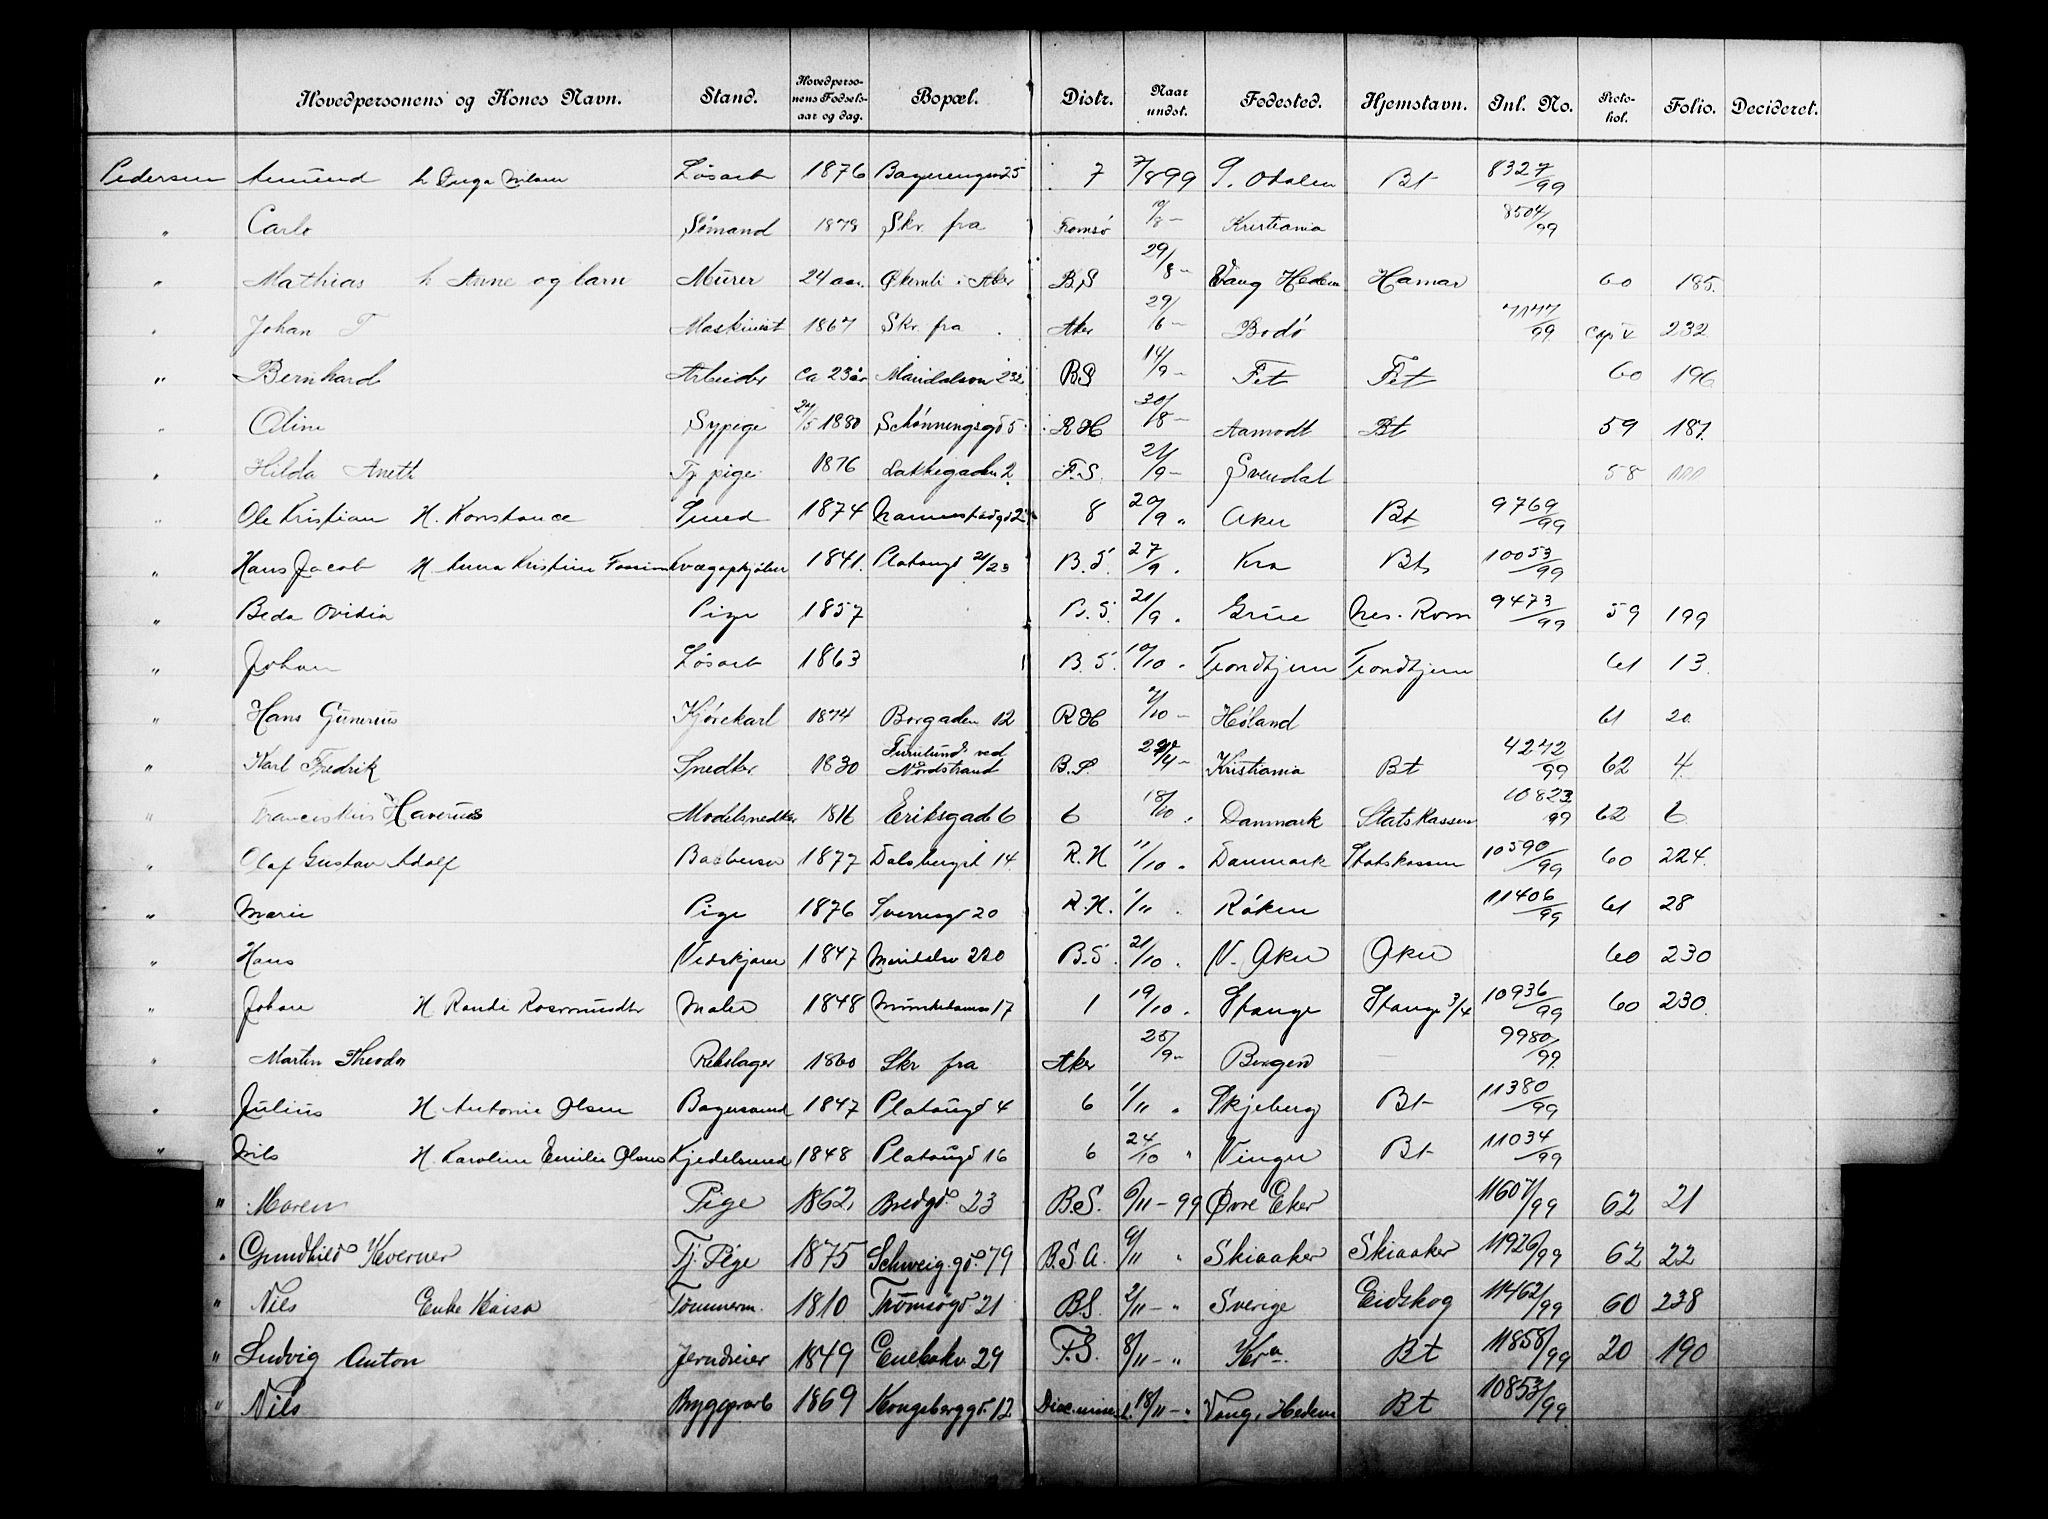 Hovedpersonens og Kones Navn. Stand. Hovedpersonens Fødselsaar og dag. Bopæl. Distr. Naar undst. Fødested. Hjemstavn. Inl. No. Protokol. Folio. Decideret.
Pedersen Amund h Inga Nilsen Løsarb 1876 25 7 7/8 99 Bt 8327/99
" Carlo Sømand 1878 Skr. fra Tromsø 10/8 - Kristiania 8504/99
" Mathias h Anne og barn Murer 24 aar. Økernli i Aker B.S 29/8 - Vang Hedem Hamar 60 185.
" Johan T Maskinist 1867 Skr. fra Aker 29/6 - Bodø 7147/99 232
" Bernhard Arbeider ca 23 år Maridalsvn 232 B.S 14/9 - Fet Fet 60 196
" Oline Sypige 1880 Schønningsgd 5 R.H 30/8 - Aamodt Bt 59 187.
" Hilda Aneth Tj pige 1876 Lakkegaden 2 F.S. 21/9 - Svendal 58
" Ole Kristian H. Konstance Smed 1874 8 20/9 " Aker Bt 9769/99
" Hans Jacob H Anna Kristine 1841. Platougd 21/23 B.S. 27/9 " Kra Bt 10053/99
" Beda Ovidia Pige 1857 B.S. 21/9 " Grue Nes. Rom 9473/99 59 199
" Johan Løsarb 1863 B.S. 10/10 " Trondhjem Trondhjem 61 13.
" Hans Gunerius Kjørekarl 1874 Borgaden 12 R.H /10 - Høland 61 20.
" Karl Fredrik Snedker 1830 ved Nordstrand B.S. /4 - Kristiania Bt 4242/99 62 4.
" Franciskus Haverius Modelsnedker 18 6 Eriksgade 6 6 18/10 " Danmark Statskassen 10823/99 62 6.
" Olaf Gustav Adolf Barbersv 1877 Dalsbergst 14 R.H 11/10 " Danmark Statskassen 10590/99 60 224.
" Marie Pige 1876 Sverresgd 20 R.H. 1/11 " Røken 11406/99 61 28
" Hans Vedskjærer 1847 220 B.S. 21/10 " V. Aker Aker 60 230
" Johan H Randi Rosmundtr Maler 1848 17 1 19/10 " Stange Stange 3/4 10936/99 60 230.
" Martin Theodor Rebslager 1860 Skr fra Aker 25/9 - Bergen 9980/99
" Julius H Antonie Olsen Bagersvend 1847 Platougd 4 6 1/11 " Skjeberg Bt 11380/99
" Nils H. Karoline Emilie Olsens Kjedelsmed 1848 Platougd 16 6 24/10 " Vinger Bt 11034/99
" Maren Pige 1862. Bredgd. 23 B.S. 6/11 - 99 Øvre Eker 11607/99 62 21
" Gundhild Kverner Tj. Pige 1875 Schweig. gd. 79 B.S.A. 9/11 " Skiaaker Skiaaker 11926/99 62 22
" Nils Enke Kaisa Tømmerm. 1810 Tromsøgd 21 B.S. 2/11 - " Sverige Eidskog 11462/99 60 238
" Ludvig Anton Jerndreier 1849 Enebakv. 29 F.S. 8/11 - " Kra. Bt 11858/99 20 190
" Nils Byggearb 1869 Kongsberggd. 12 18/11 - " Vang, Hedem Bt 10853/99